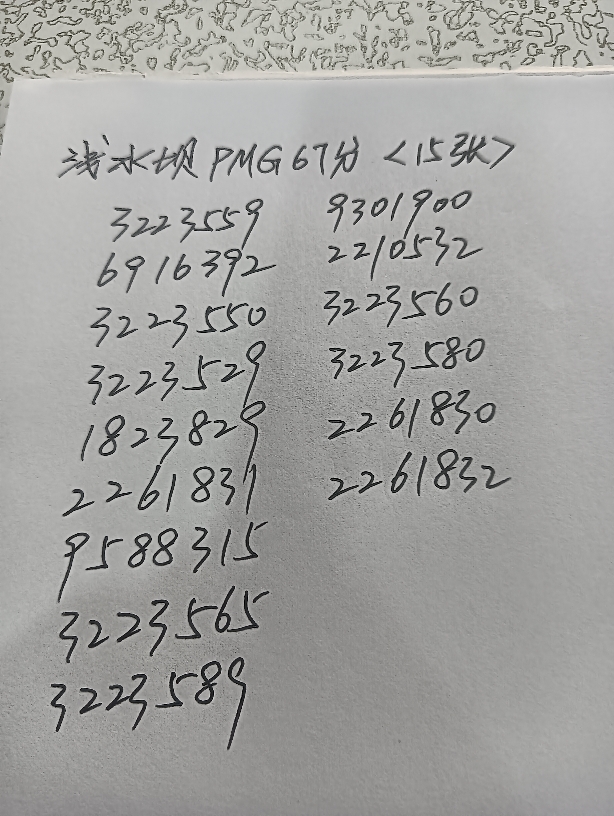 浅水坝 PMG 67分 <15张>
3223559
6916392
3223550
3223529
1823829
2261831
9588315
3223565
3223589
9301900
2210532
3223560
3223580
2261830
2261832